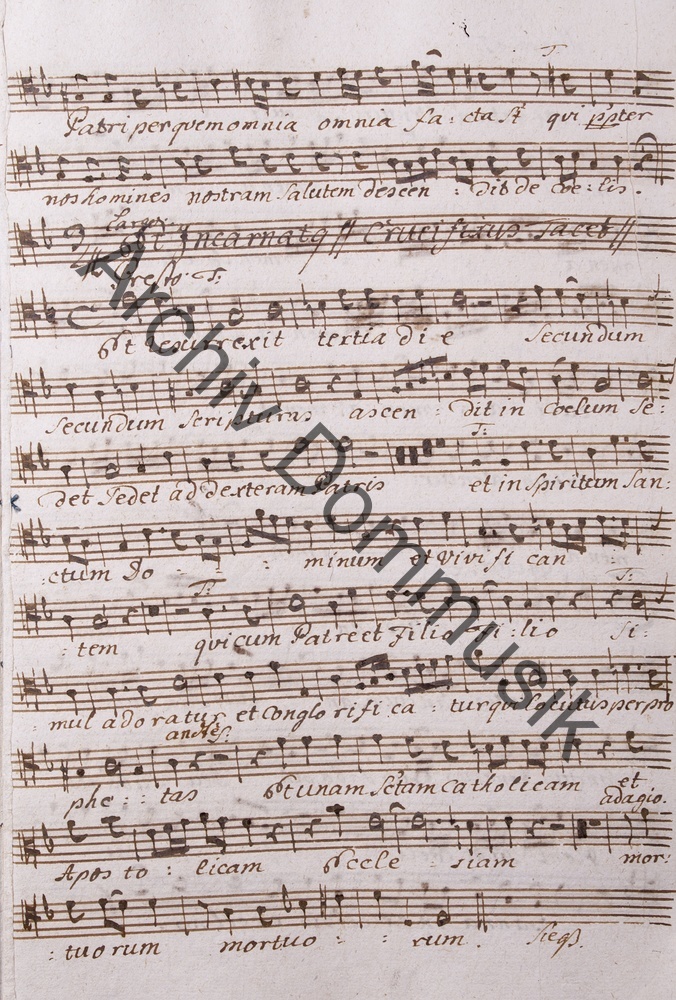 T.
Patri per quem omnia omnia fa : cta st qui ppter
nos homines nostram salutem descen : dit de coe : lis.
Largo.
Et Incarnatq // Crucifixus Tacet //
Presto T:
Et resurrexit tertia di e secundum
secundum scripturas ascen : dit in Coelum se :
T:
det sedet ad dexteram Patris et in Spiritum San :
: ctum Do : : minum et Vivifi can :
T: T:
: tem qui cum Patre et Filio Fi : lio si :
mul adoratur et Conglorifi ca : tur qui locutus per pro
andte.
phe : : tas Et unam Sctam Catholicam et
adagio.
Apos to : licam Eccle : siam mor :
: tuorum mortuo : : rum.
Archiv Dommusik